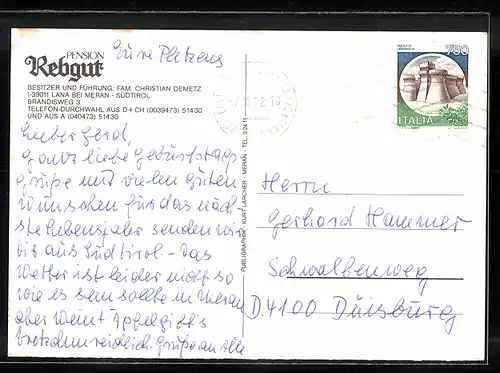 PENSION
Rebgut
Eure Platzens
BESITZER UND FÜHRUNG: FAM. CHRISTIAN DEMETZ
I-39011 LANA BEI MERAN - SÜDTIROL
BRANDISWEG 3
TELEFON-DURCHWAHL AUS D + CH (0039473) 51430
UND AUS A (040473) 51430
Lieber Gerd,
ganz liebe Geburtstags
grüße mit vielen guten
Wünschen für das näch
ste Lebensjahr senden wir
Dir aus Südtirol. - Das
Wetter ist leider nicht so
wie es sein sollte in Meran
aber Wein + Äpfel gibt's
trotzdem reichlich. Grüße an Alle
PUBLIGRAPHIK KURT LARCHER MERAN - TEL. 3 24 11
750
ITALIA
Herrn
Gerhard Hammer
Schwalbenweg
D. 4100 Duisburg